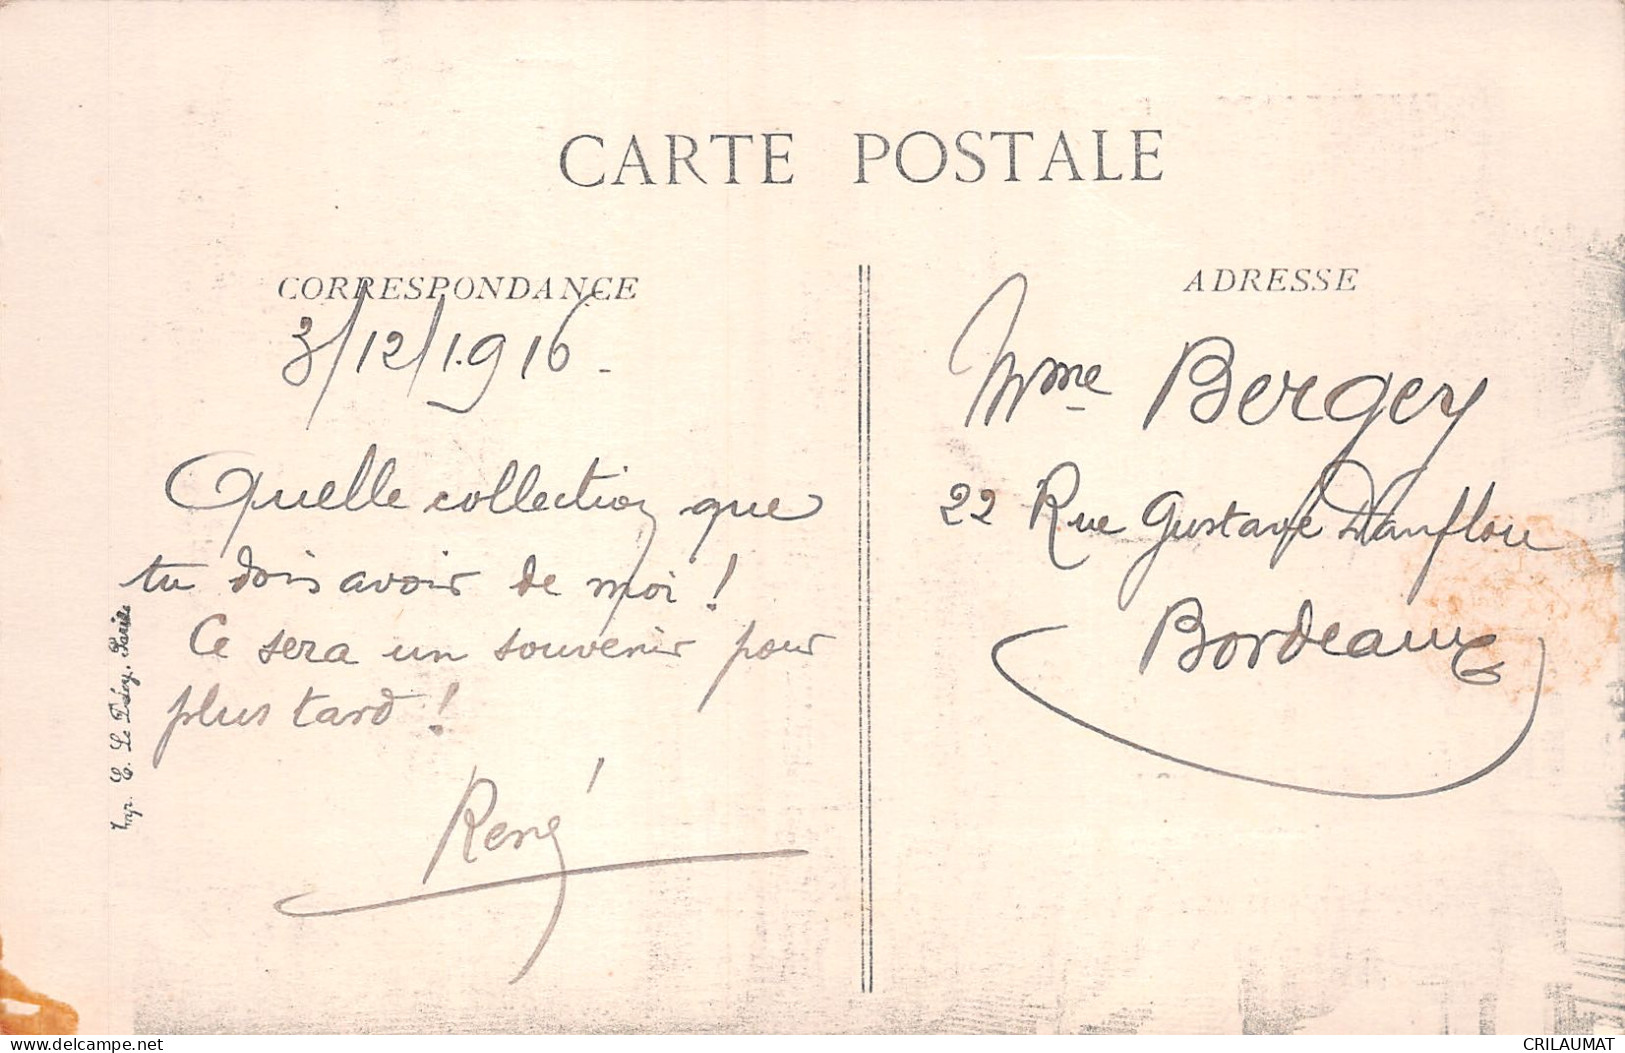 CARTE POSTALE
CORRESPONDANCE
3/12/1916 -
Quelle collection que
tu dois avoir de moi !
Ce sera un souvenir pour
plus tard !
René
Imp. E. Le Deley, Paris
ADRESSE
Mme Bergey
22 Rue Gustave Danflou
Bordeaux
www.delcampe.net
CRILAUMAT